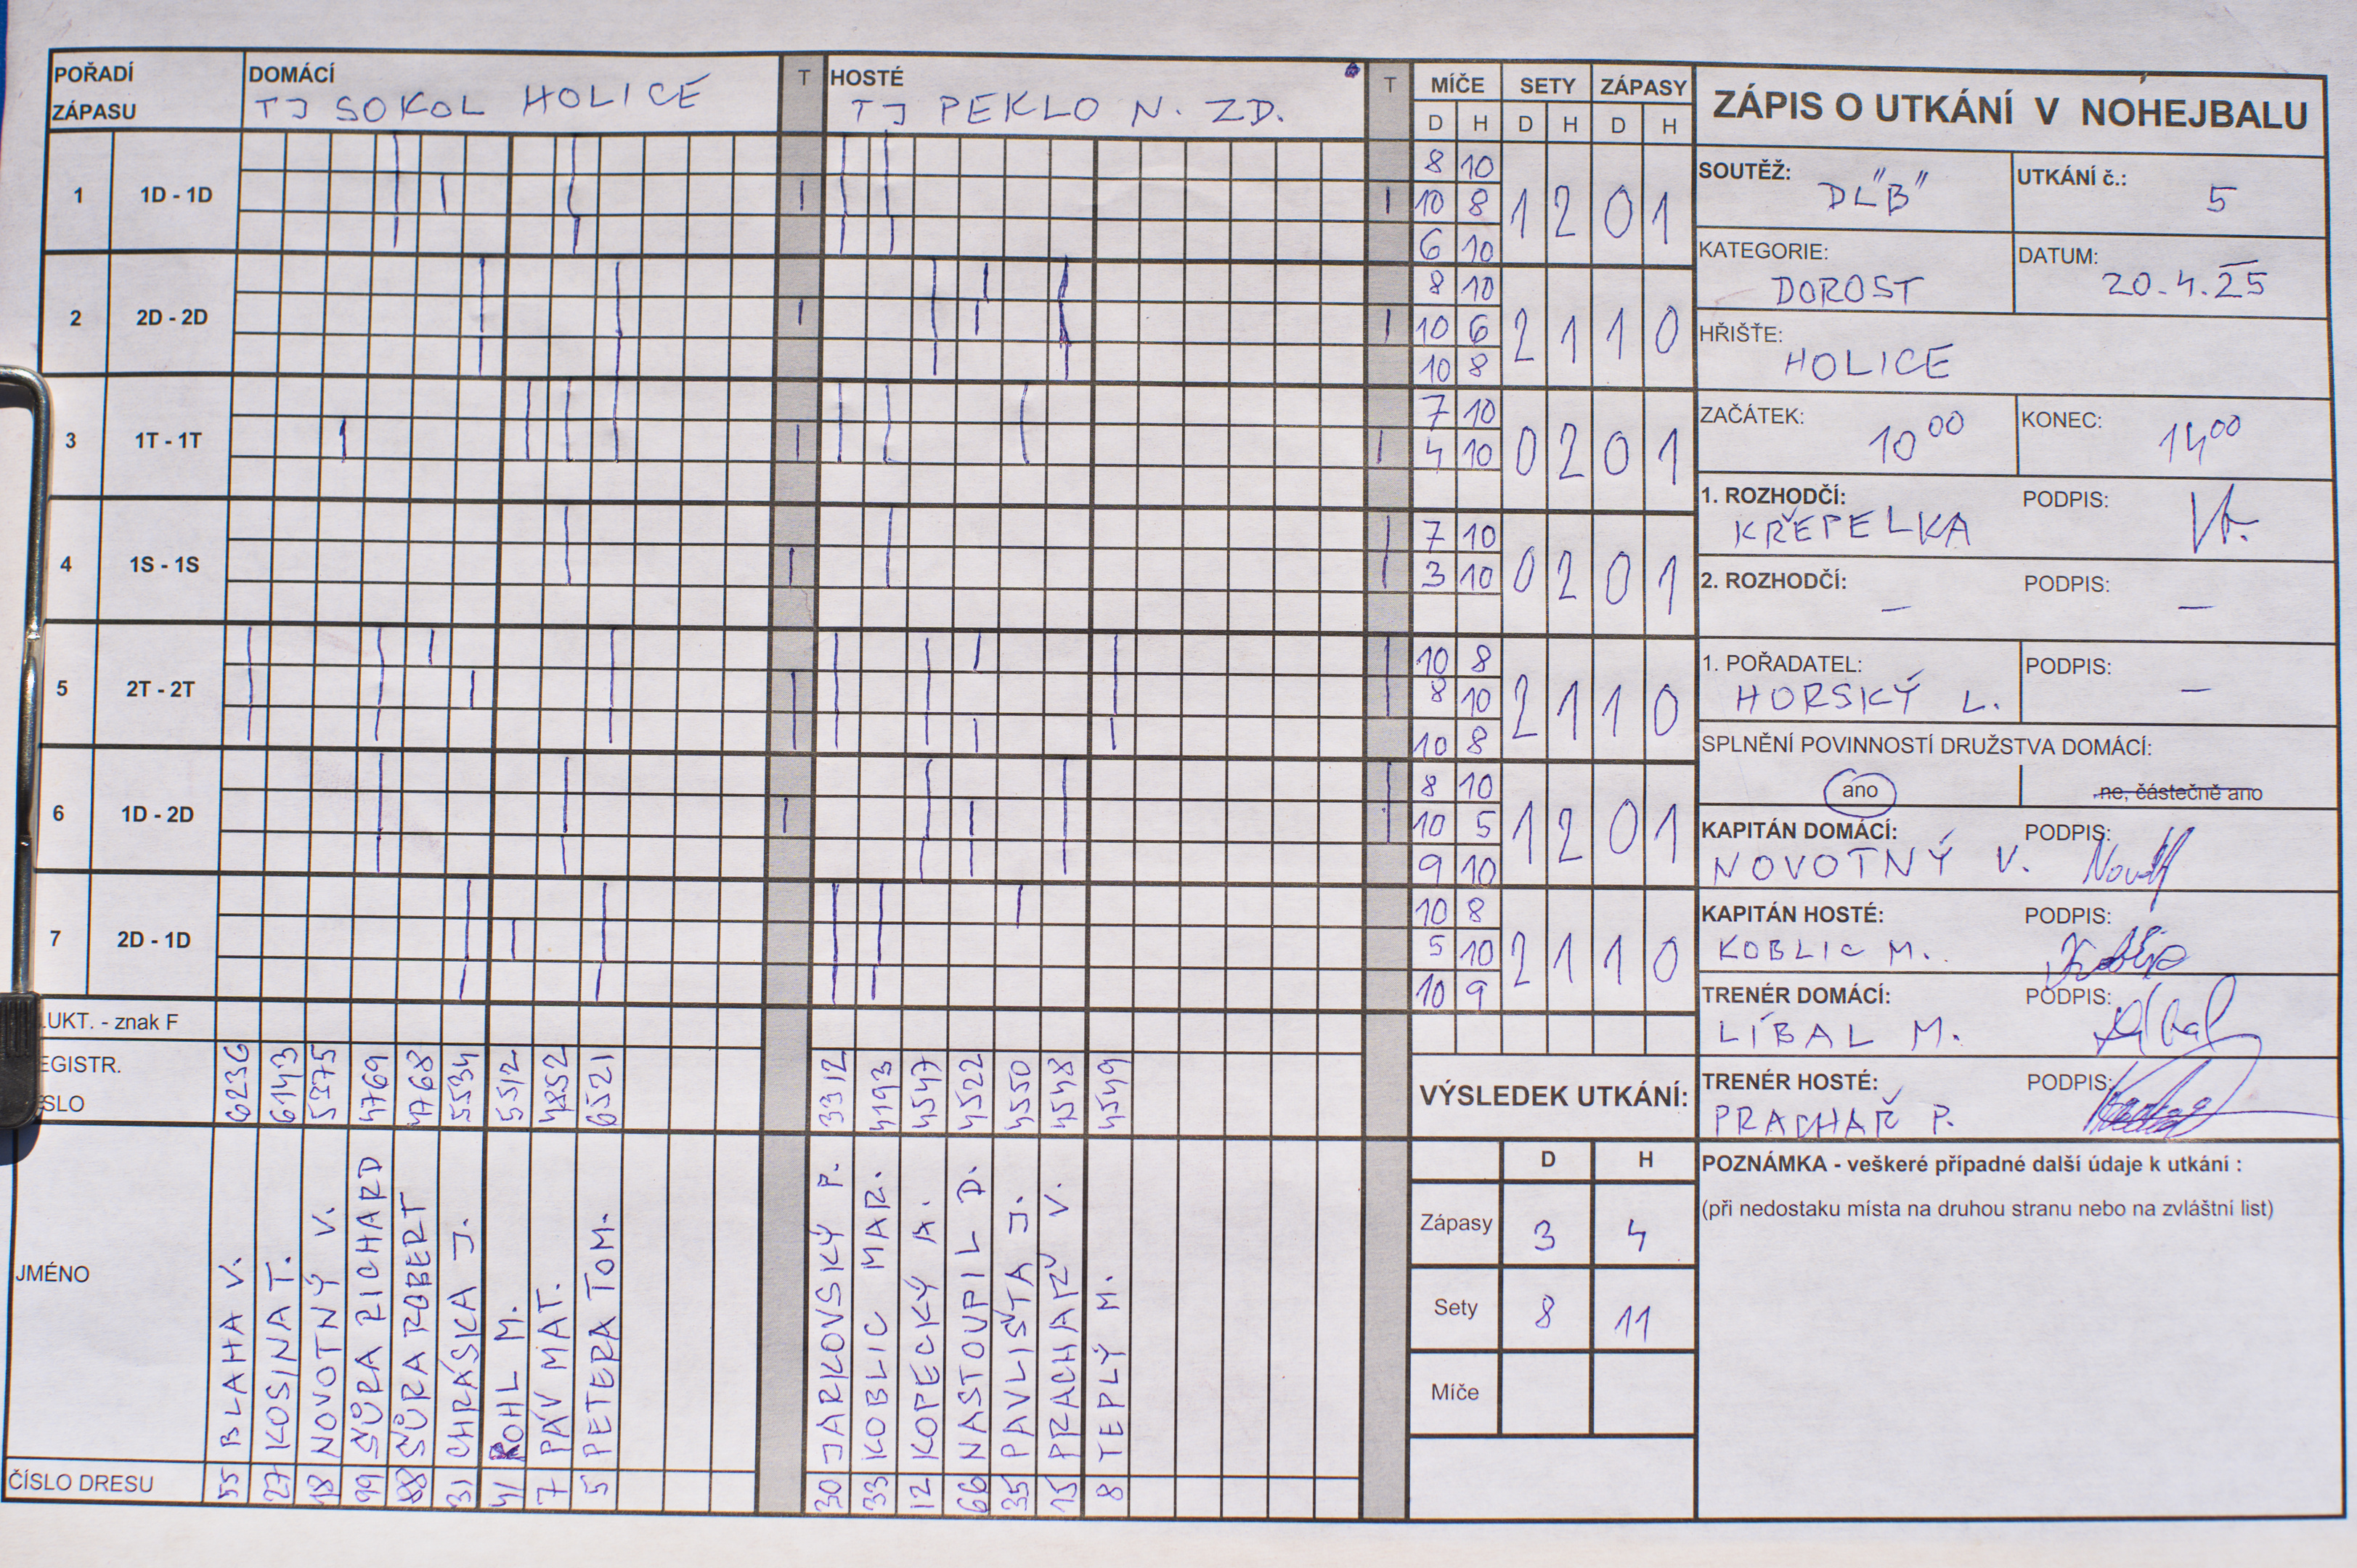 POŘADÍ ZÁPASU
DOMÁCÍ
TJ SOKOL HOLICE
T
HOSTÉ
TJ PEKLO N. ZD.
T
MÍČE SETY ZÁPASY
D H D H D H
1 1D - 1D
8 10
10 8
6 10
1 2 0 1
2 2D - 2D
8 10
10 6
10 8
2 1 1 0
3 1T - 1T
7 10
4 10
0 2 0 1
4 1S - 1S
7 10
3 10
0 2 0 1
5 2T - 2T
10 8
8 10
10 8
2 1 1 0
6 1D - 2D
8 10
10 5
9 10
1 2 0 1
7 2D - 1D
10 8
5 10
10 9
2 1 1 0
LUKT. - znak F
EGISTR.
SLO
62336 61143 5375 4769 4768 5534 5512 4852 6521
3312 4193 4547 4522 4550 4548 4549
JMÉNO
BLAHA V.
KOSINA T.
NOVOTNÝ V.
ŠŮRA RICHARD
ŠŮRA ROBERT
CHRÁSKA J.
ROHL M.
PÁV MAT.
PETERA TOM.
JARKOVSKÝ P.
KOBLIC MAR.
KOPECKÝ A.
NASTOUPIL D.
PAVLIŠTA J.
PRACHAŘ V.
TEPLÝ M.
ČÍSLO DRESU
55 27 18 99 88 31 41 7 5
30 33 12 66 35 15 8
VÝSLEDEK UTKÁNÍ:
D H
Zápasy 3 4
Sety 8 11
Míče
ZÁPIS O UTKÁNÍ V NOHEJBALU
SOUTĚŽ: DL"B"
UTKÁNÍ č.: 5
KATEGORIE: DOROST
DATUM: 20.4.25
HŘIŠTE: HOLICE
ZAČÁTEK: 10 00
KONEC: 14 00
1. ROZHODČÍ: KŘEPELKA
PODPIS:
2. ROZHODČÍ: –
PODPIS: –
1. POŘADATEL: HORSKÝ L.
PODPIS: –
SPLNĚNÍ POVINNOSTÍ DRUŽSTVA DOMÁCÍ:
ano
ne, částečně ano
KAPITÁN DOMÁCÍ: NOVOTNÝ V.
PODPIS:
KAPITÁN HOSTÉ: KOBLIC M.
PODPIS:
TRENÉR DOMÁCÍ: LÍBAL M.
PODPIS:
TRENÉR HOSTÉ: PRACHAŘ P.
PODPIS:
POZNÁMKA - veškeré případné další údaje k utkání :
(při nedostaku místa na druhou stranu nebo na zvláštní list)